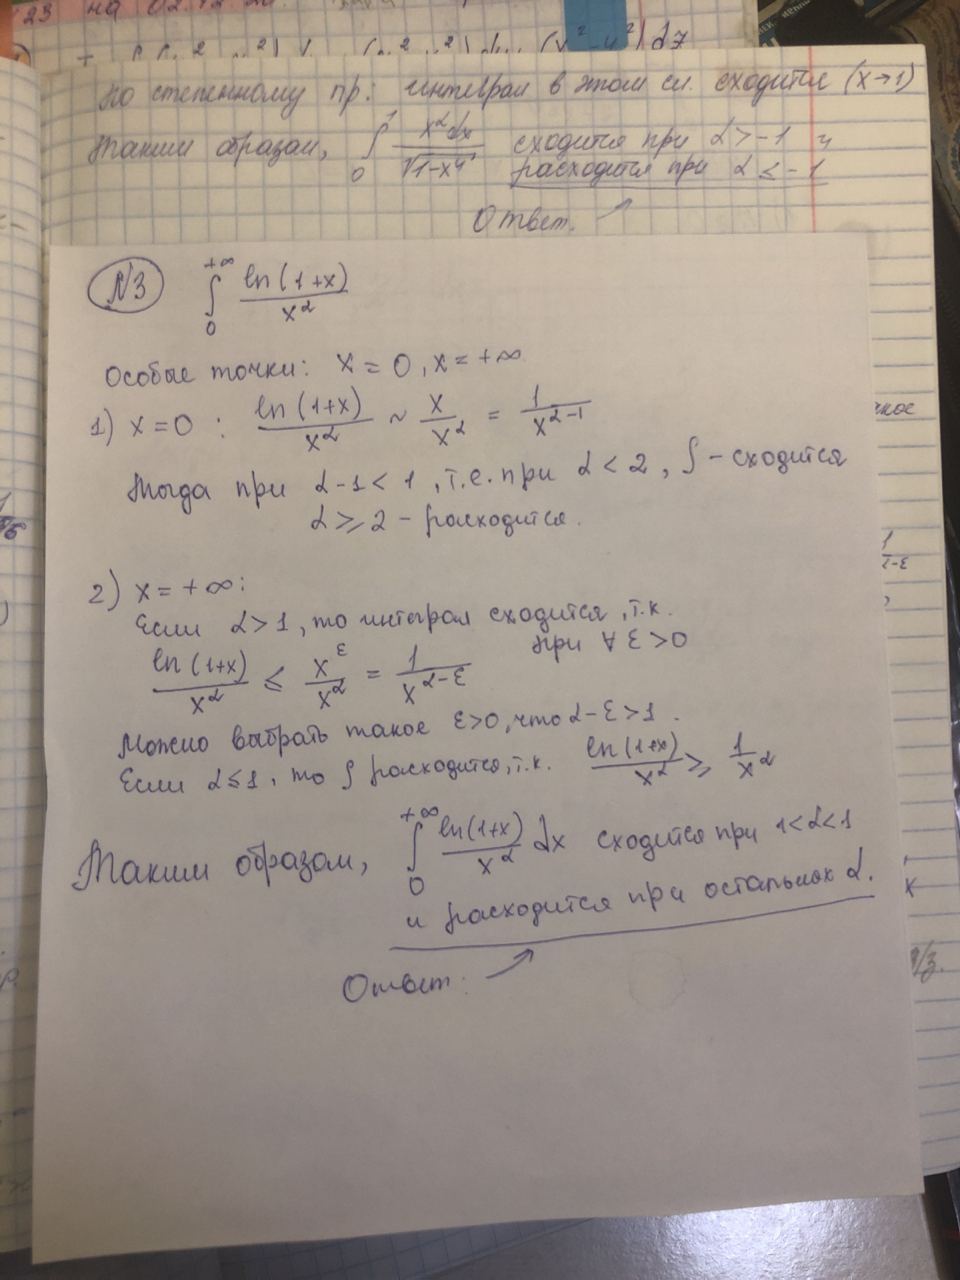 23 на 02.12.20
по степенному пр.: интеграл в этом сл. сходится (x→1)
Таким образом, ∫₀¹ x^α dx / √(1-x⁴) сходится при α > -1 и
расходится при α ≤ -1
Ответ. ↗
N3 ∫₀^{+∞} ln(1+x) / x^α
Особые точки: x = 0, x = +∞
1) x=0 : ln(1+x) / x^α ~ x / x^α = 1 / x^{α-1}
Тогда при α-1 < 1, т.е. при α < 2, ∫ - сходится
α ≥ 2 - расходится.
2) x = +∞:
Если α > 1, то интеграл сходится, т.к.
ln(1+x) / x^α ≤ x^ε / x^α = 1 / x^{α-ε} при ∀ ε > 0
Можно выбрать такое ε>0, что α-ε>1.
Если α≤1, то ∫ расходится, т.к. ln(1+x) / x^α ≥ 1 / x^α
Таким образом, ∫₀^{+∞} ln(1+x) / x^α dx сходится при 1<α<1
и расходится при остальных α.
Ответ: ↗